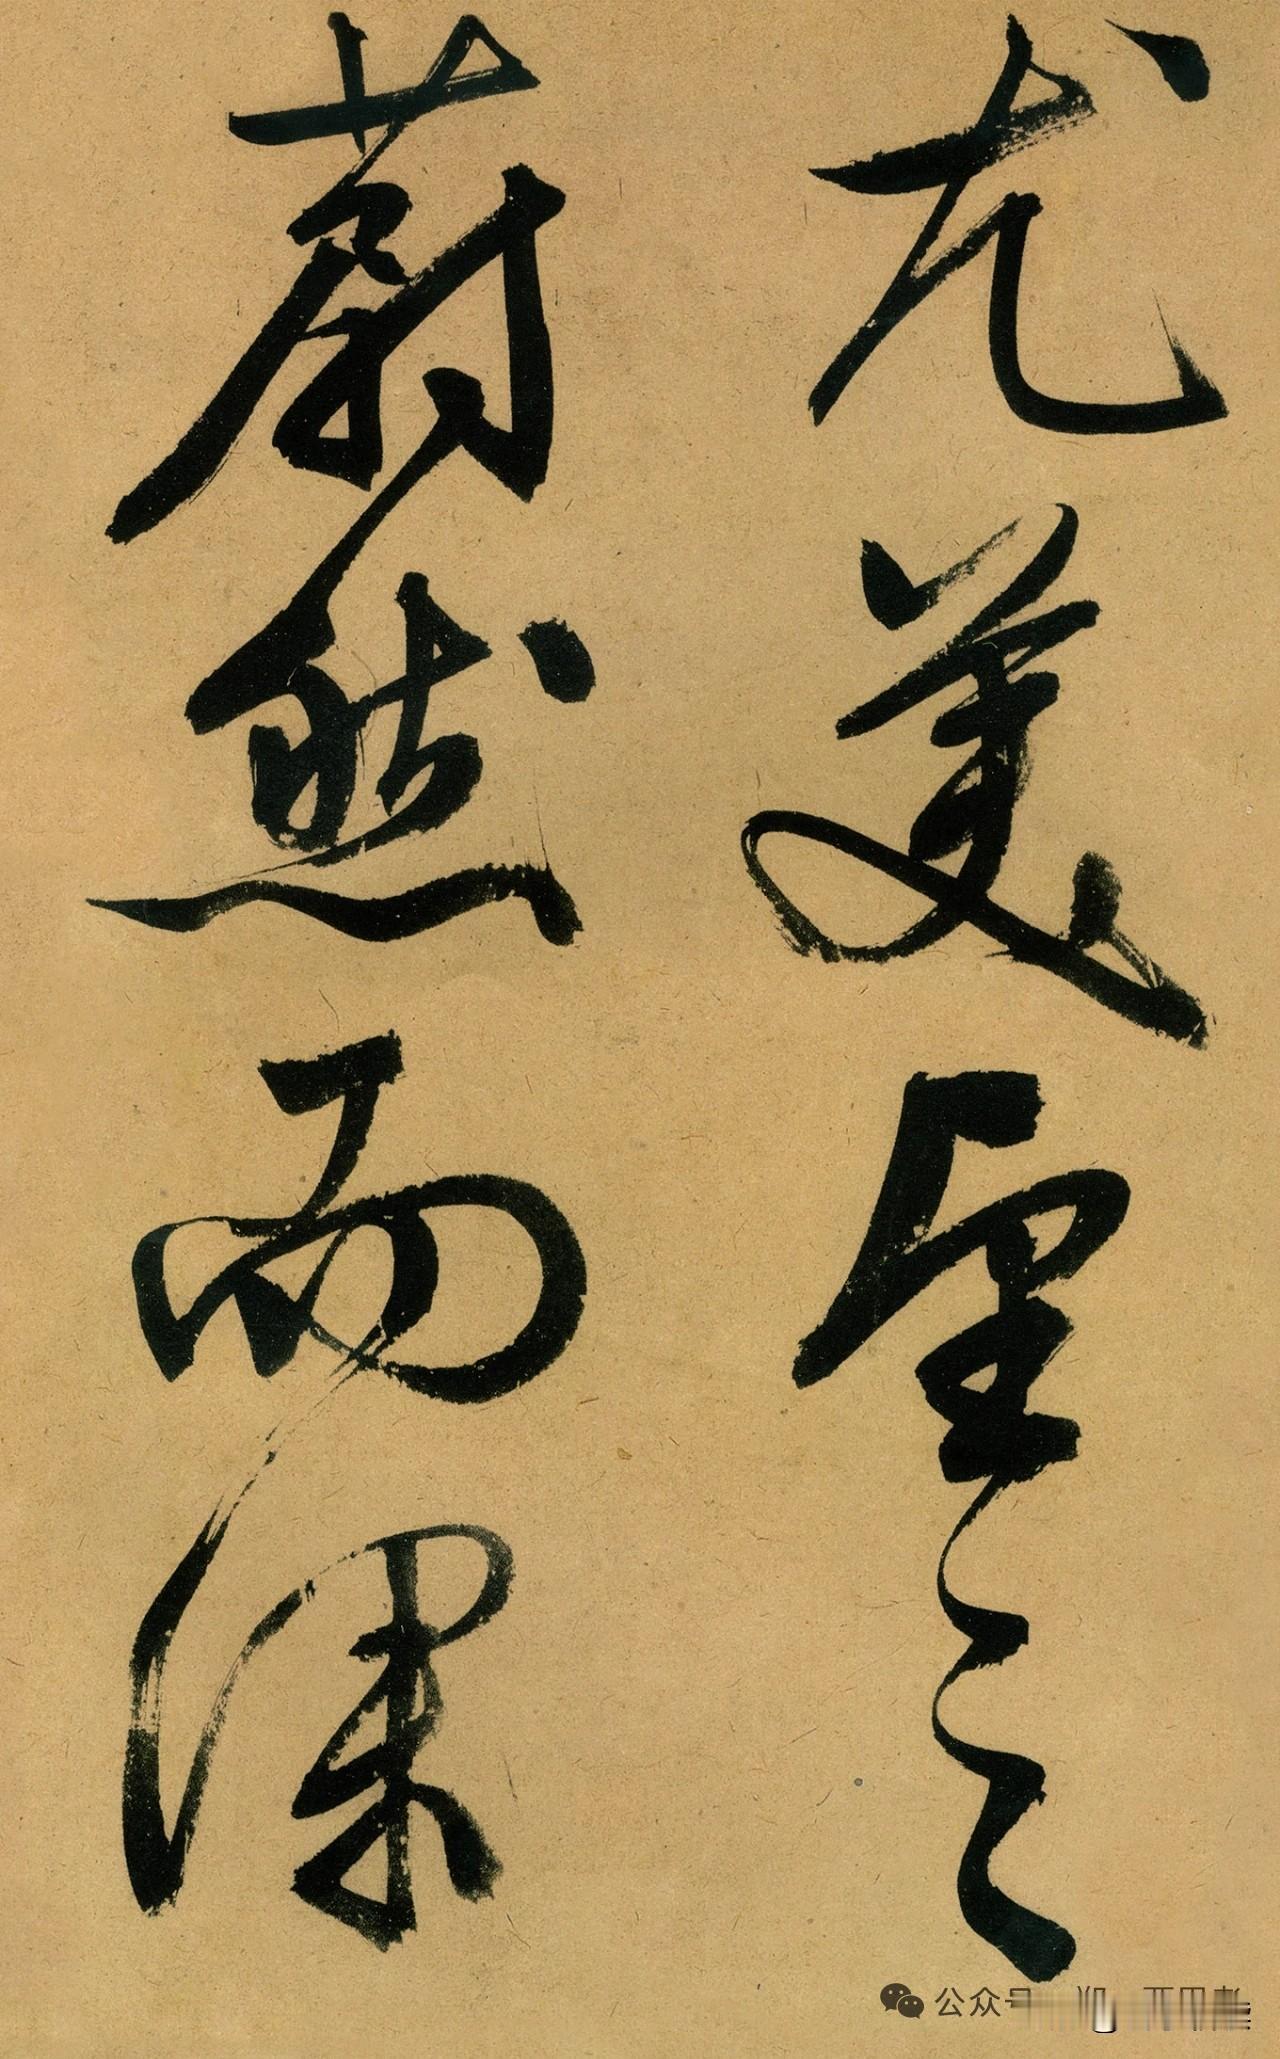 尤美望之
蔚然而深
公众号